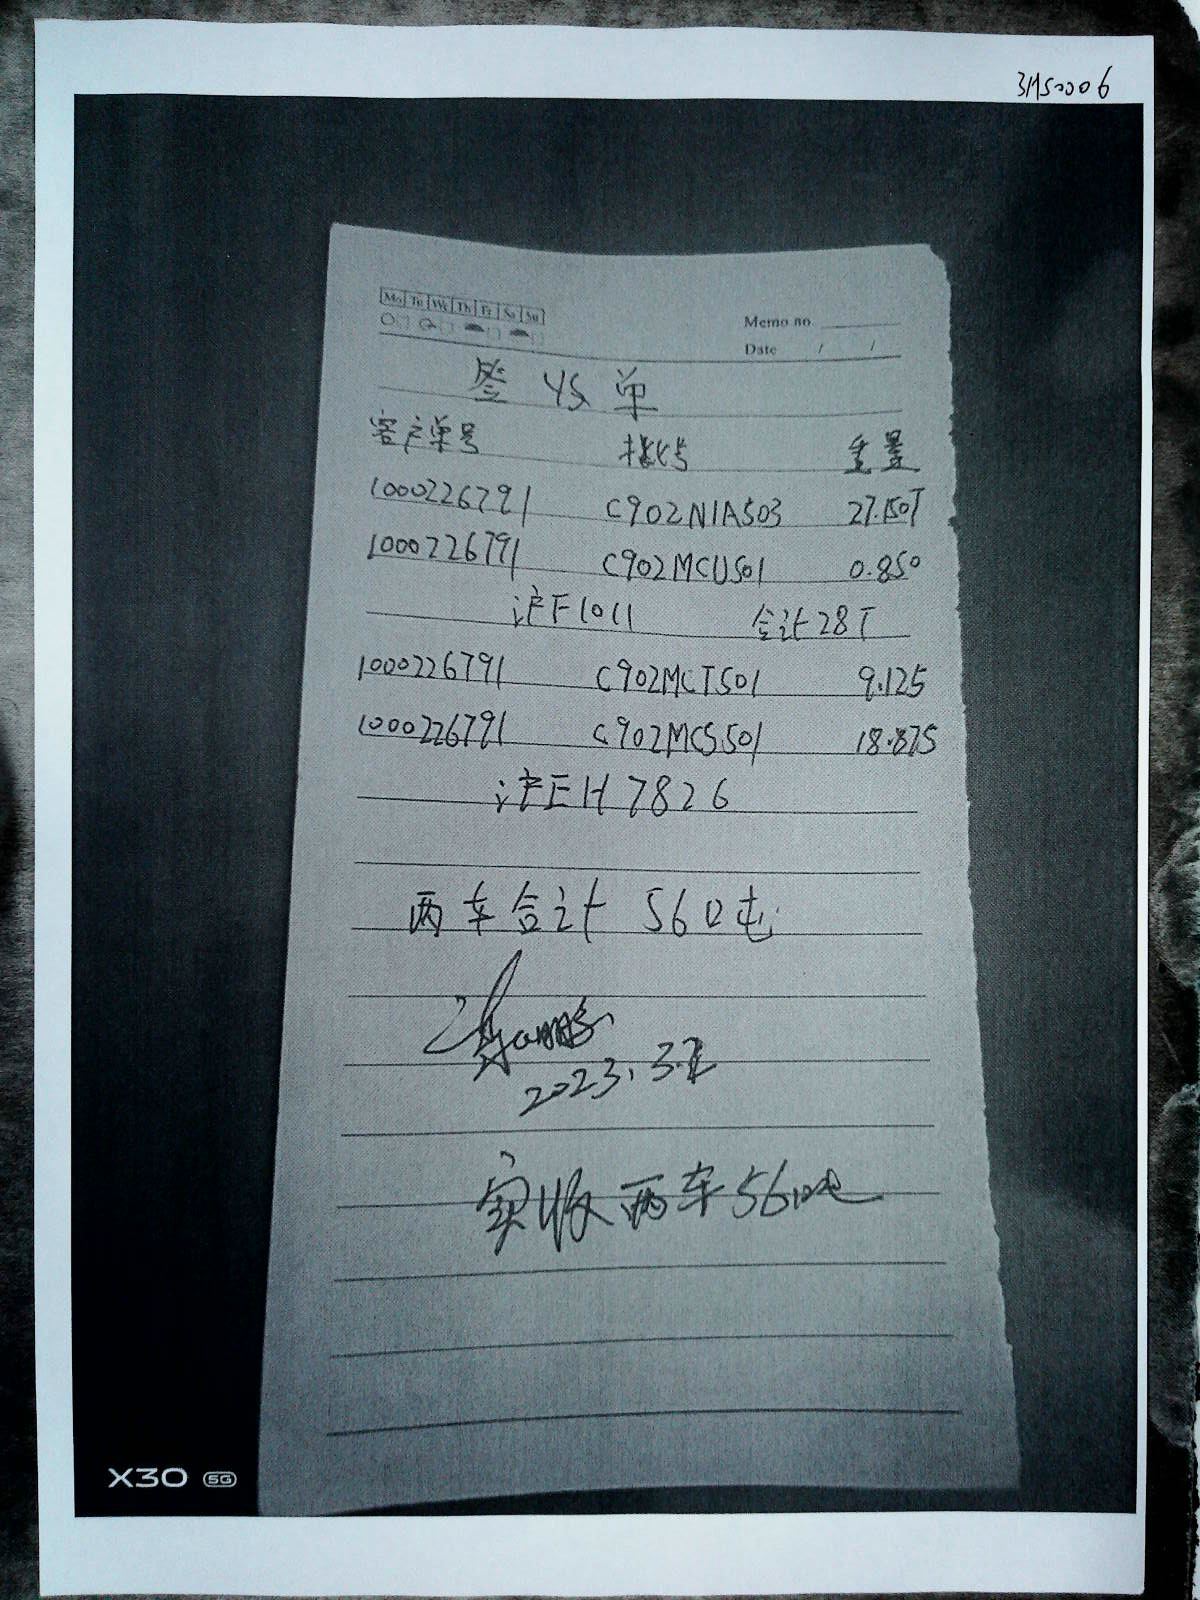 Mo Tu We Th Fr Sa Su
Memo no
Date / /
签收单
客户单号 批号 重量
1000226791 C902N1A503 27.150T
1000226791 C902MCU501 0.850
沪F1011 合计28T
1000226791 C902MCT501 9.125
1000226791 C902MCS501 18.875
沪EH7826
两车合计 56吨
2023.3.2
实收两车56吨
X30 5G